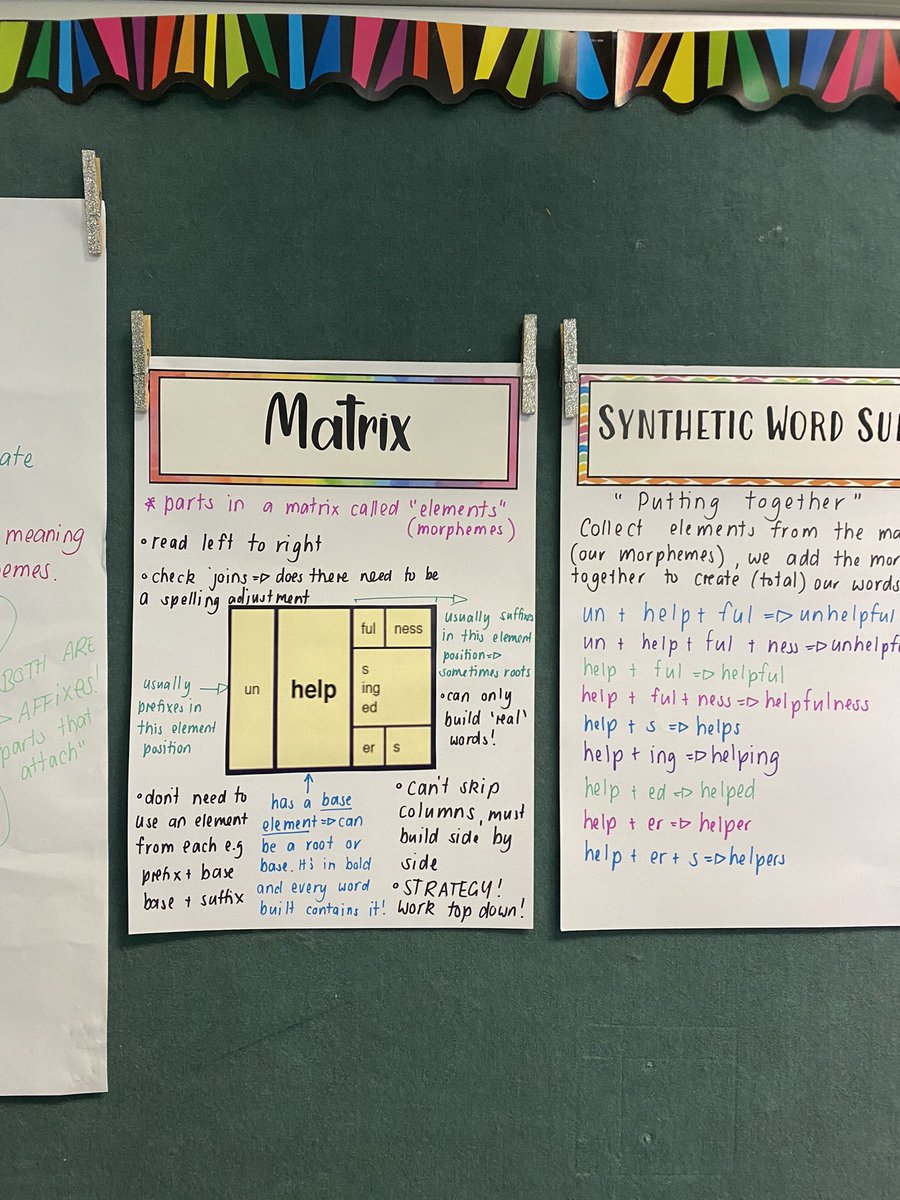 ate
meaning
emes.
BOTH ARE
AFFIXES!
parts that
attach"
Matrix
* parts in a matrix called "elements"
(morphemes)
• read left to right
• check 'joins => does there need to be
a spelling adjustment
un
help
ful
ness
s
ing
ed
er
s
usually
prefixes in
this element
position
usually suffixes
in this element
position =>
sometimes roots
• can only
build 'real'
words!
• don't need to
use an element
from each e.g
prefix + base
base + suffix
has a base
element => can
be a root or
base. It's in bold
and every word
built contains it!
• Can't skip
columns, must
build side by
side
• STRATEGY!
work top down!
SYNTHETIC WORD SU
"Putting together"
Collect elements from the ma
(our morphemes), we add the mor
together to create (total) our words
un + help + ful => unhelpful
un + help + ful + ness => unhelpf
help + ful => helpful
help + ful + ness => helpfulness
help + s => helps
help + ing => helping
help + ed => helped
help + er => helper
help + er + s => helpers